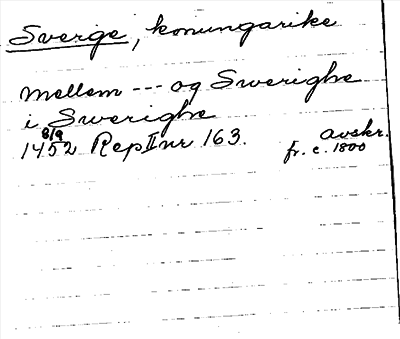 Sverge, konungarike
mellem --- og Swerighe
i Swerighe
8/9
1452 Rep II nr 163. avskr.
fr. c. 1800